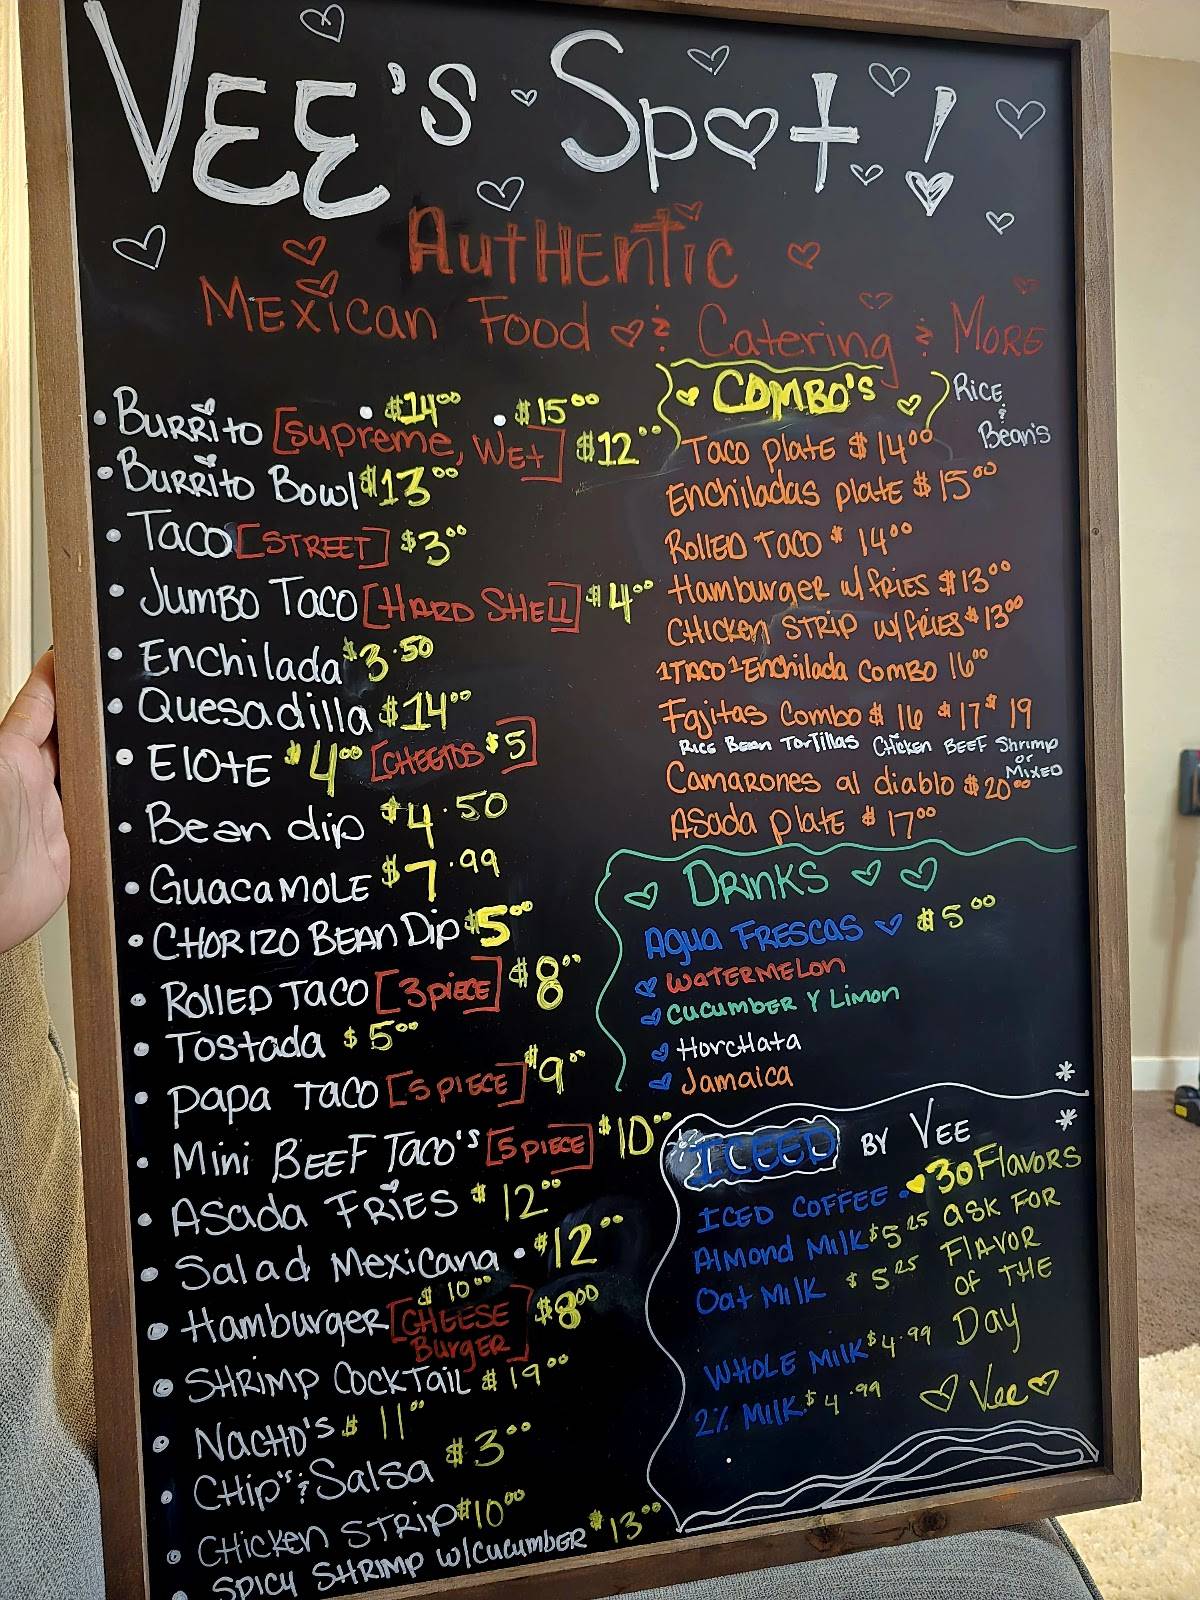 VEE'S Spot!
AutHEntic
MExican Food & Catering & MORE
• BURRito [supreme, WEt] $12⁰⁰
• $14⁰⁰ • $15⁰⁰
• BURRito Bowl $13⁰⁰
• Taco [STREET] $3⁰⁰
• Jumbo Taco [HARD SHEll] $4⁰⁰
• Enchilada $3.50
• Quesadilla $14⁰⁰
• ElotE $4⁰⁰ [CHEETOS $5]
• Bean dip $4.50
• GuacaMOLE $7.99
• CHORIZO BEAN Dip $5⁰⁰
• ROLLED TACO [3 piECE] $8⁰⁰
• Tostada $5⁰⁰
• Papa TACO [5 PIECE] $9⁰⁰
• Mini BEEF TACO'S [5 piECE] $10⁰⁰
• ASada FRiES $12⁰⁰
• Salad Mexicana • $12⁰⁰
• Hamburger [CHEESE BurgER $10⁰⁰] $8⁰⁰
• SHRiMp COCKTaiL $19⁰⁰
• NacHO'S $11⁰⁰
• CHip's & Salsa $3⁰⁰
• CHicken STRip $10⁰⁰
• SPICY SHRIMP w/CUCUMBER $13⁰⁰
COMBO'S
RicE & BEan's
Taco platE $14⁰⁰
Enchiladas platE $15⁰⁰
RollED TACO $14⁰⁰
Hamburger w/ fRiES $13⁰⁰
CHICKEN STRIP w/ FRiES $13⁰⁰
1 TACO 1 Enchilada Combo 16⁰⁰
Fajitas Combo $16 $17 $19
Rice Bean Tortillas Chicken BEEF Shrimp or MixED
Camarones al diablo $20⁰⁰
ASada plate $17⁰⁰
DRinKS
Agua FRESCAS $5⁰⁰
WATERMELon
CUCUMBER Y Limon
HorcHata
Jamaica
*
ICEED BY VEE *
ICED COFFEE • 30 Flavors
Almond Milk $5.25 ASK FOR
Oat Milk $5.25 FLAVOR
OF THE
WHOLE Milk $4.99 Day
2% Milk $4.99 Vee